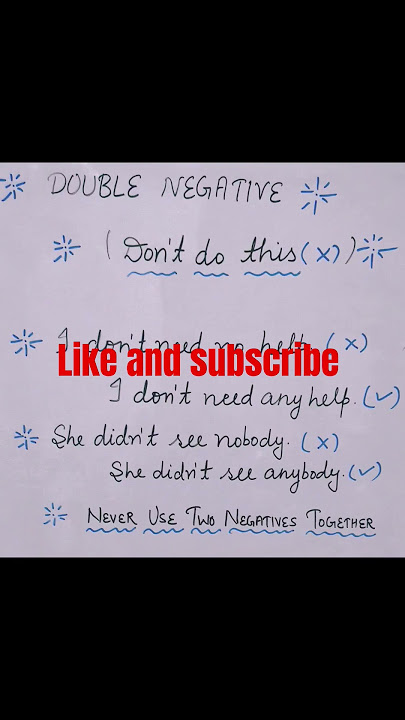 DOUBLE NEGATIVE
(Don't do this (x))
I don't need no help. (x)
Like and subscribe
I don't need any help. (✓)
She didn't see nobody. (x)
She didn't see anybody. (✓)
NEVER USE TWO NEGATIVES TOGETHER